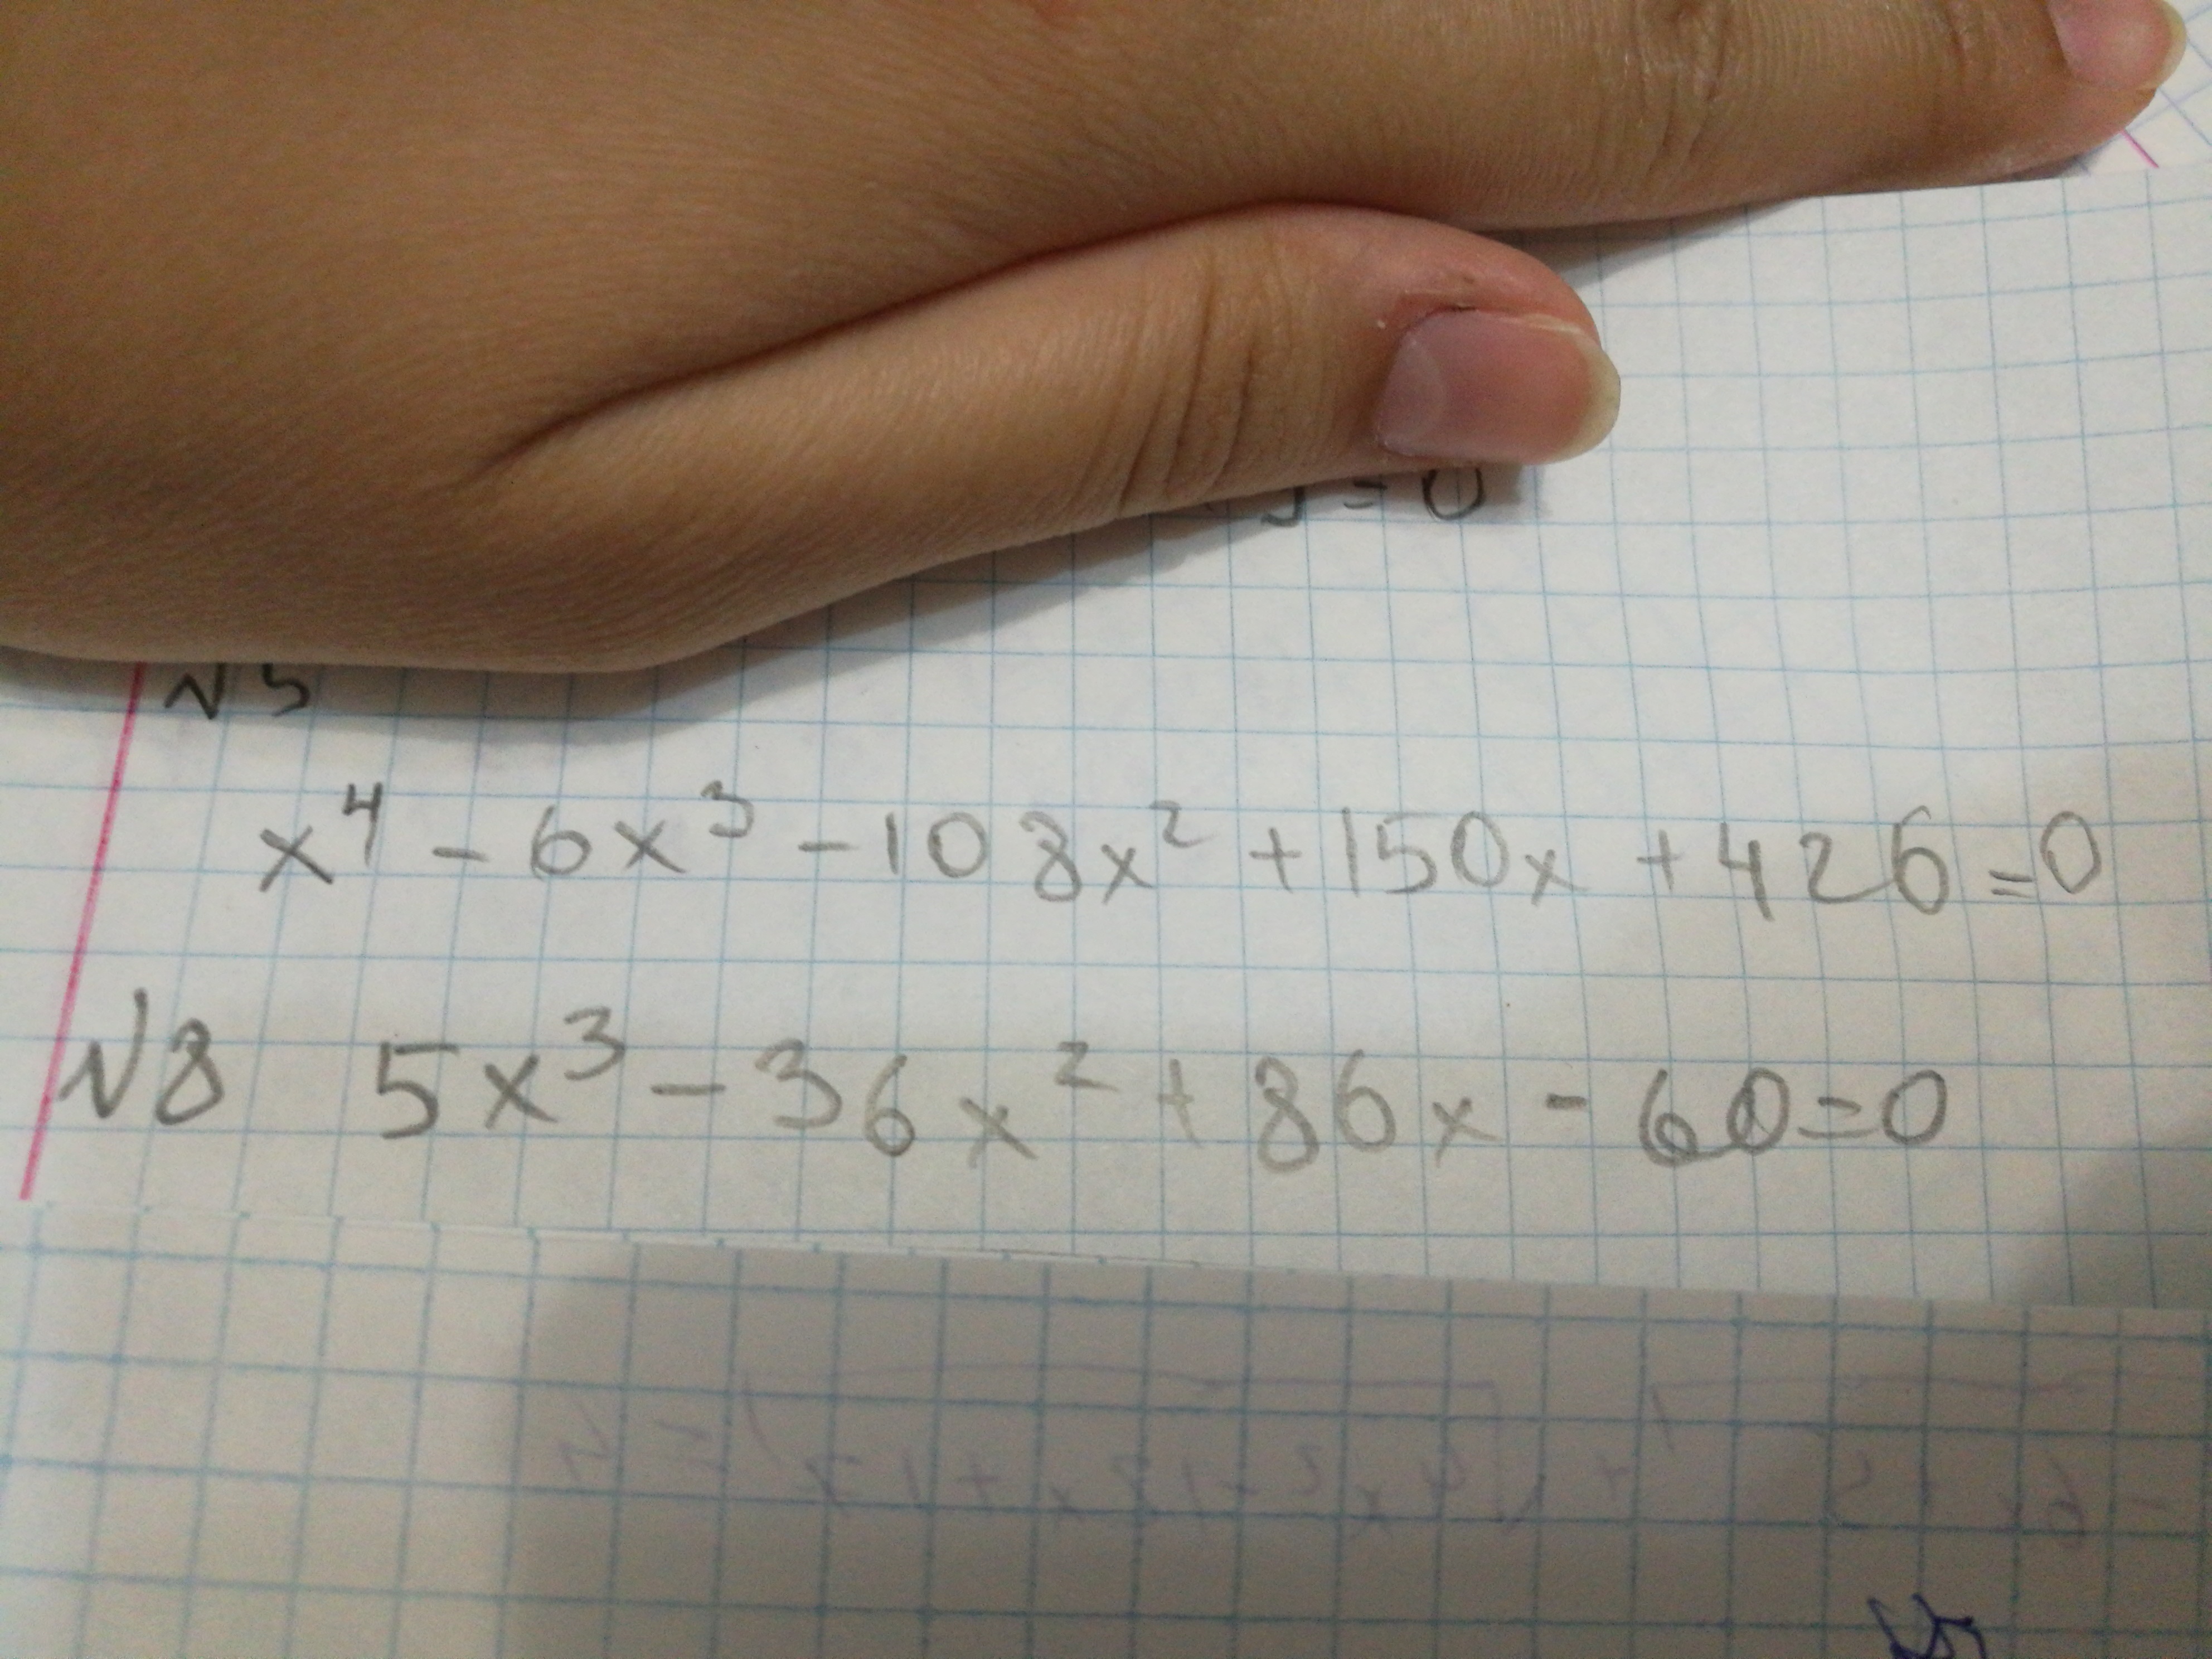 =0
№5
x⁴ - 6x³ - 108x² + 150x + 426 = 0
№8 5x³ - 36x² + 86x - 60 = 0